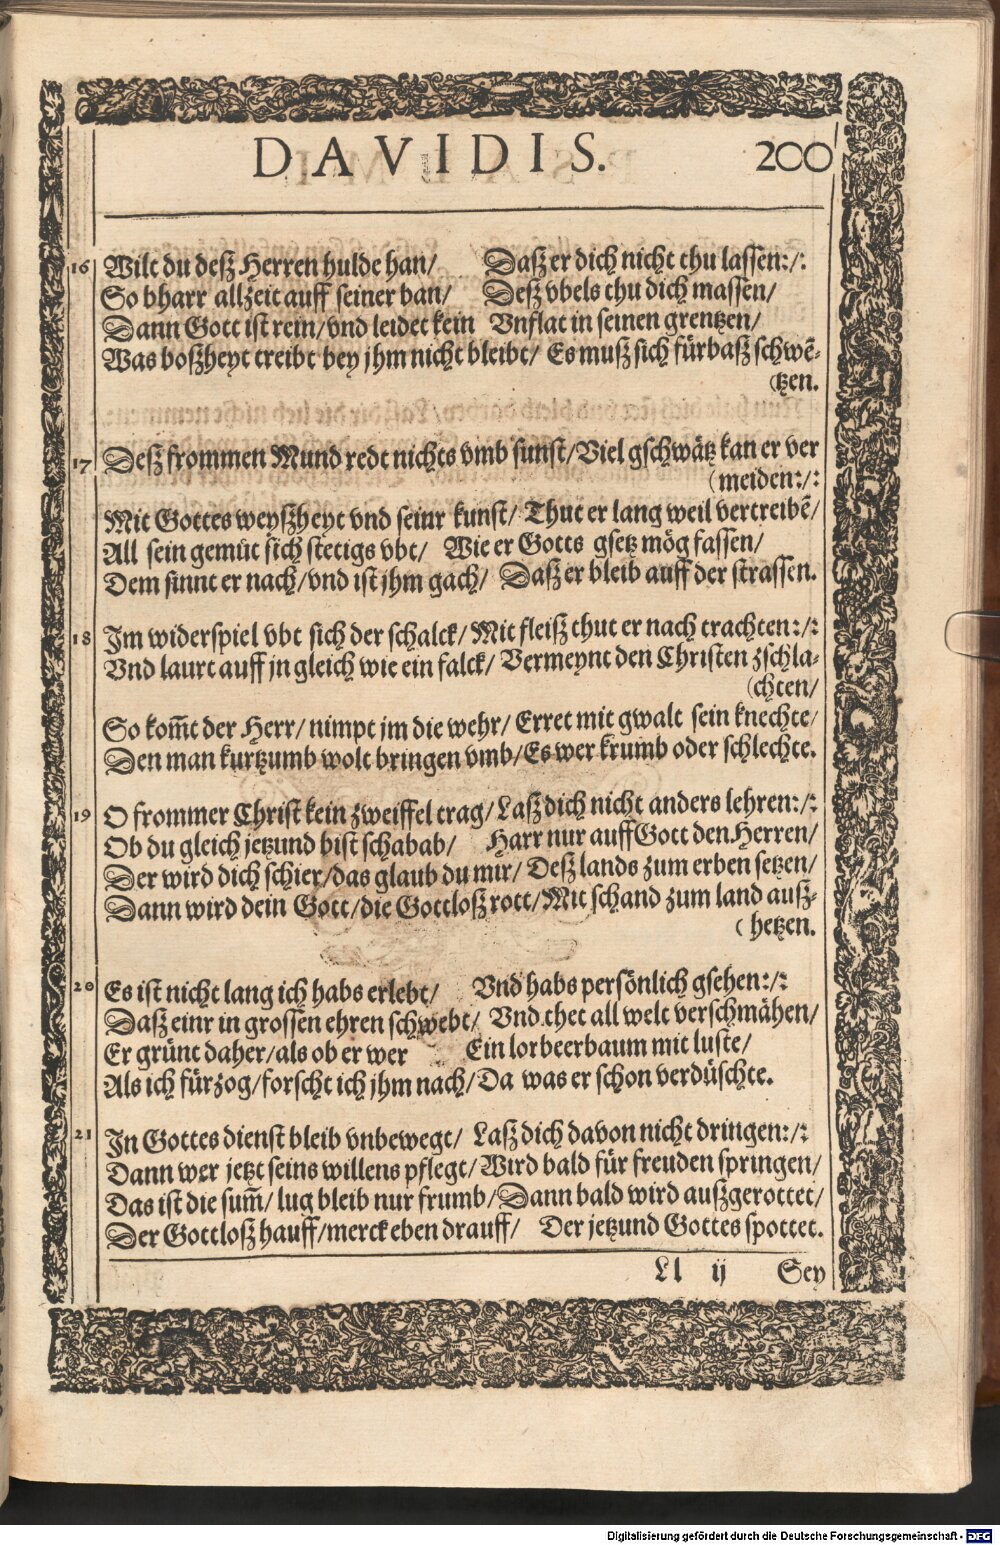 DAVIDIS. 200
16 Wilt du deß Herren hulde han/ Daß er dich nicht thu lassen:/:
So bharr allzeit auff seiner ban/ Deß vbels thu dich massen/
Dann Gott ist rein/ vnd leidet kein Vnflat in seinen grentzen/
Was boßheyt treibt bey jhm nicht bleibt/ Es muß sich fürbaß schwē-
(tzen.
17 Deß frommen Mund redt nichts vmb sunst/ Viel gschwätz kan er ver
(meiden:/:
Mit Gottes weyßheyt vnd seinr kunst/ Thut er lang weil vertreibē/
All sein gemüt sich stetigs vbt/ Wie er Gotts gsetz mög fassen/
Dem sinnt er nach/ vnd ist jhm gach/ Daß er bleib auff der strassen.
18 Im widerspiel vbt sich der schalck/ Mit fleiß thut er nach trachten:/:
Vnd laurt auff jn gleich wie ein falck/ Vermeynt den Christen zschla-
(chten/
So kom̄t der Herr/ nimpt jm die wehr/ Erret mit gwalt sein knechte/
Den man kurtzumb wolt bringen vmb/ Es wer krumb oder schlechte.
19 O frommer Christ kein zweiffel trag/ Laß dich nicht anders lehren:/:
Ob du gleich jetzund bist schabab/ Harr nur auff Gott den Herren/
Der wird dich schier/ das glaub du mir/ Deß lands zum erben setzen/
Dann wird dein Gott/ die Gottloß rott/ Mit schand zum land auß-
(hetzen.
20 Es ist nicht lang ich habs erlebt/ Vnd habs persönlich gsehen:/:
Daß einr in grossen ehren schwebt/ Vnd thet all welt verschmähen/
Er grünt daher/ als ob er wer Ein lorbeerbaum mit luste/
Als ich fürzog/ forscht ich jhm nach/ Da was er schon verdüschte.
21 In Gottes dienst bleib vnbewegt/ Laß dich davon nicht dringen:/:
Dann wer jetzt seins willens pflegt/ Wird bald für freuden springen/
Das ist die sum̄/ lug bleib nur frumb/ Dann bald wird außgerottet/
Der Gottloß hauff/ merck eben drauff/ Der jetzund Gottes spottet.
Ll ij Sey
Digitalisierung gefördert durch die Deutsche Forschungsgemeinschaft - DFG